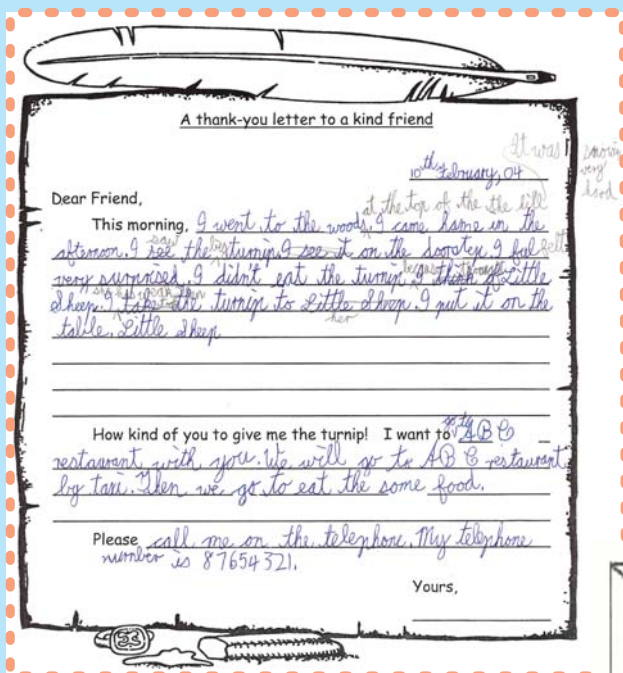 A thank-you letter to a kind friend
It was snowing very hard
10th February, 04
Dear Friend,
at the top of the the hill
This morning, I went to the woods. I came home in the
saw big felt
afternoon. I see the turnip. I see it on the doorstep. I feel
because I thought
very surprised. I didn't eat the turnip. I think of Little
Sheep. I take the turnip to Little Sheep. I put it on the
her
table. Little Sheep
How kind of you to give me the turnip! I want to go to ABC
restaurant with you. We will go to ABC restaurant
by taxi. Then we go to eat the some food.
Please call me on the telephone. My telephone
number is 87654321.
Yours,